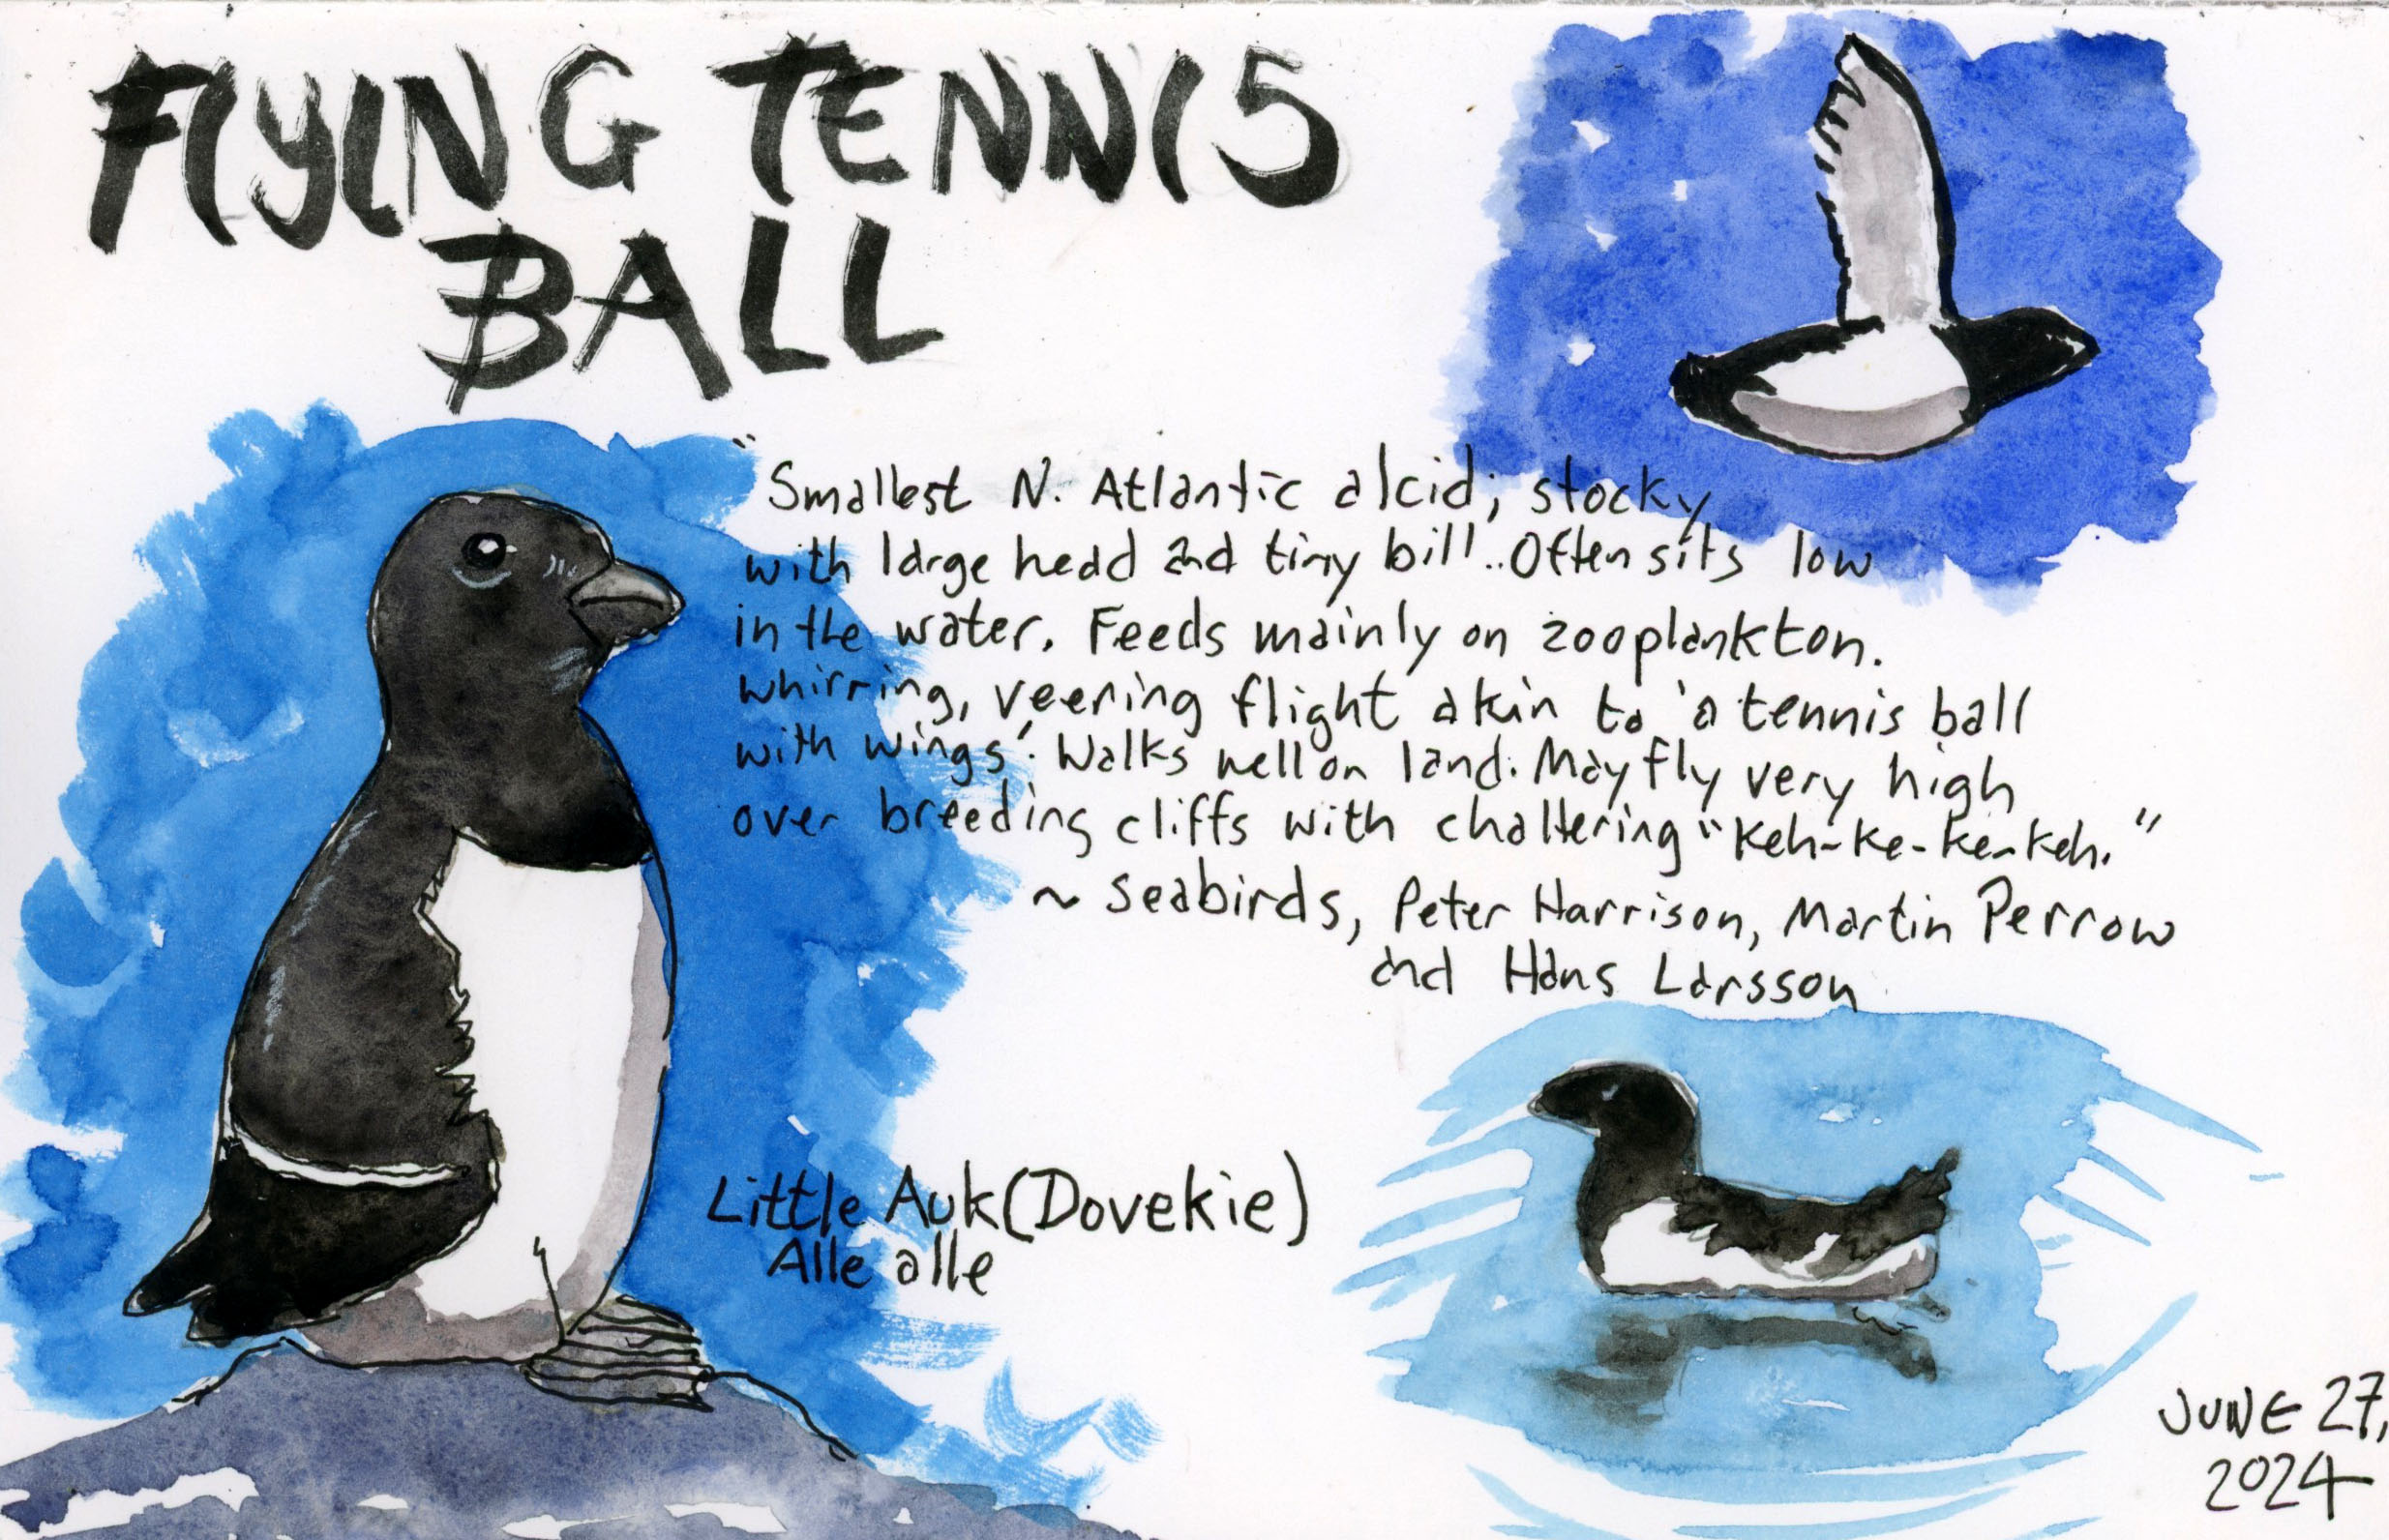 FLYING TENNIS
BALL
"Smallest N. Atlantic alcid; stocky
with large head and tiny bill.. Often sits low
in the water. Feeds mainly on zooplankton.
whirring, veering flight akin to 'a tennis ball
with wings'. Walks well on land. May fly very high
over breeding cliffs with chattering "keh-ke-ke-keh."
~ Seabirds, Peter Harrison, Martin Perrow
and Hans Larsson
Little Auk (Dovekie)
Alle alle
JUNE 27,
2024